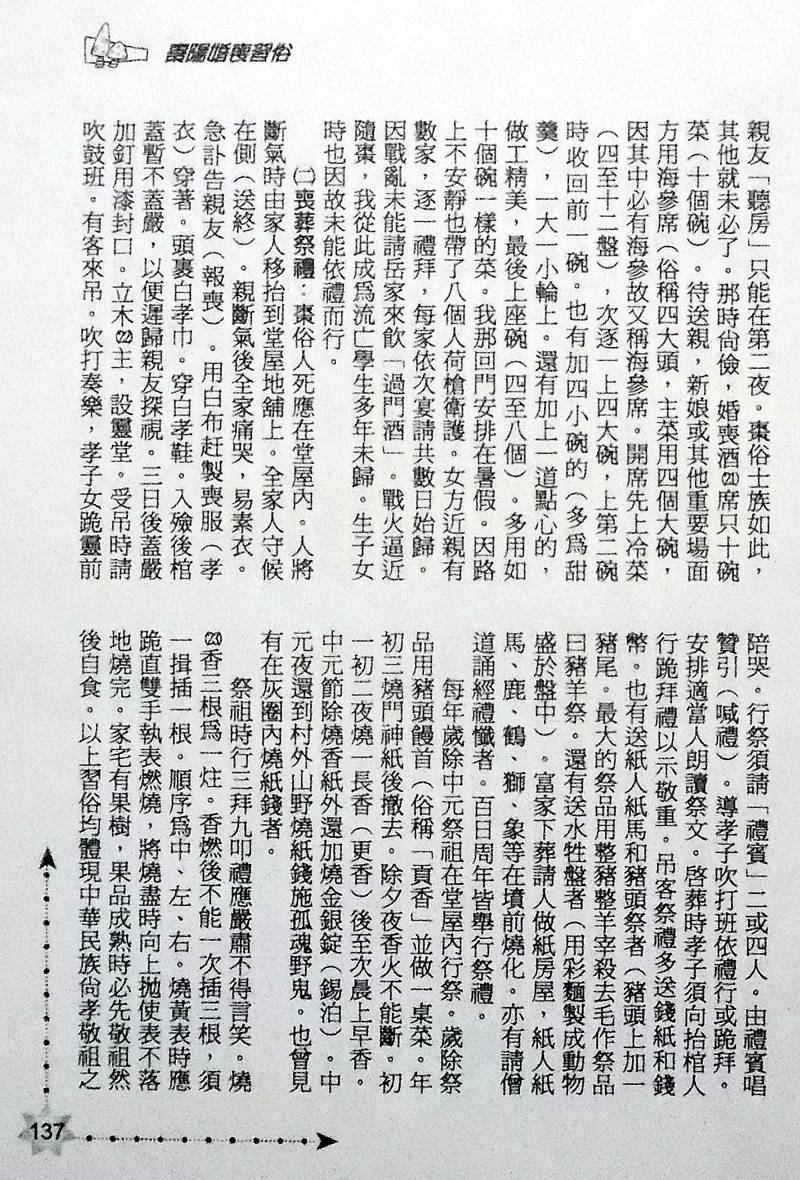 棗陽婚喪習俗
親友「聽房」只能在第二夜。棗俗士族如此，
其他就未必了。那時尙儉，婚喪酒⑳席只十碗
菜（十個碗）。待送親，新娘或其他重要場面
方用海參席（俗稱四大頭，主菜用四個大碗，
因其中必有海參故又稱海參席。開席先上冷菜
（四至十二盤），次逐一上四大碗，上第二碗
時收回前一碗。也有加四小碗的（多爲甜
羹），一大一小輪上。還有加上一道點心的，
做工精美，最後上座碗（四至八個）。多用如
十個碗一樣的菜。我那回門安排在暑假。因路
上不安靜也帶了八個人荷槍衛護。女方近親有
數家，逐一禮拜，每家依次宴請共數日始歸。
因戰亂未能請岳家來飲「過門酒」。戰火逼近
隨棗，我從此成爲流亡學生多年未歸。生子女
時也因故未能依禮而行。
㈡喪葬祭禮：棗俗人死應在堂屋內。人將
斷氣時由家人移抬到堂屋地舖上。全家人守候
在側（送終）。親斷氣後全家痛哭，易素衣。
急訃告親友（報喪）。用白布赶製喪服（孝
衣）穿著。頭裹白孝巾。穿白孝鞋。入殮後棺
蓋暫不蓋嚴，以便遲歸親友探視。三日後蓋嚴
加釘用漆封口。立木㉒主，設靈堂。受吊時請
吹鼓班。有客來吊。吹打奏樂，孝子女跪靈前
陪哭。行祭須請「禮賓」二或四人。由禮賓唱
贊引（喊禮）。導孝子吹打班依禮行或跪拜。
安排適當人朗讀祭文。啓葬時孝子須向抬棺人
行跪拜禮以示敬重。吊客祭禮多送錢紙和錢
幣。也有送紙人紙馬和豬頭祭者（豬頭上加一
豬尾。最大的祭品用整豬整羊宰殺去毛作祭品
曰豬羊祭。還有送水牲盤者（用彩麵製成動物
盛於盤中）。富家下葬請人做紙房屋，紙人紙
馬、鹿、鶴、獅、象等在墳前燒化。亦有請僧
道誦經禮懺者。百日周年皆舉行祭禮。
每年歲除中元祭祖在堂屋內行祭。歲除祭
品用豬頭饅首（俗稱「貢香」並做一桌菜。年
初三燒門神紙後撤去。除夕夜香火不能斷。初
一初二夜燒一長香（更香）後至次晨上早香。
中元節除燒香紙外還加燒金銀錠（錫泊）。中
元夜還到村外山野燒紙錢施孤魂野鬼。也曾見
有在灰圈內燒紙錢者。
祭祖時行三拜九叩禮應嚴肅不得言笑。燒
㉓香三根爲一炷。香燃後不能一次插三根，須
一揖插一根。順序爲中、左、右。燒黃表時應
跪直雙手執表燃燒，將燒盡時向上抛使表不落
地燒完。家宅有果樹，果品成熟時必先敬祖然
後自食。以上習俗均體現中華民族尙孝敬祖之
137